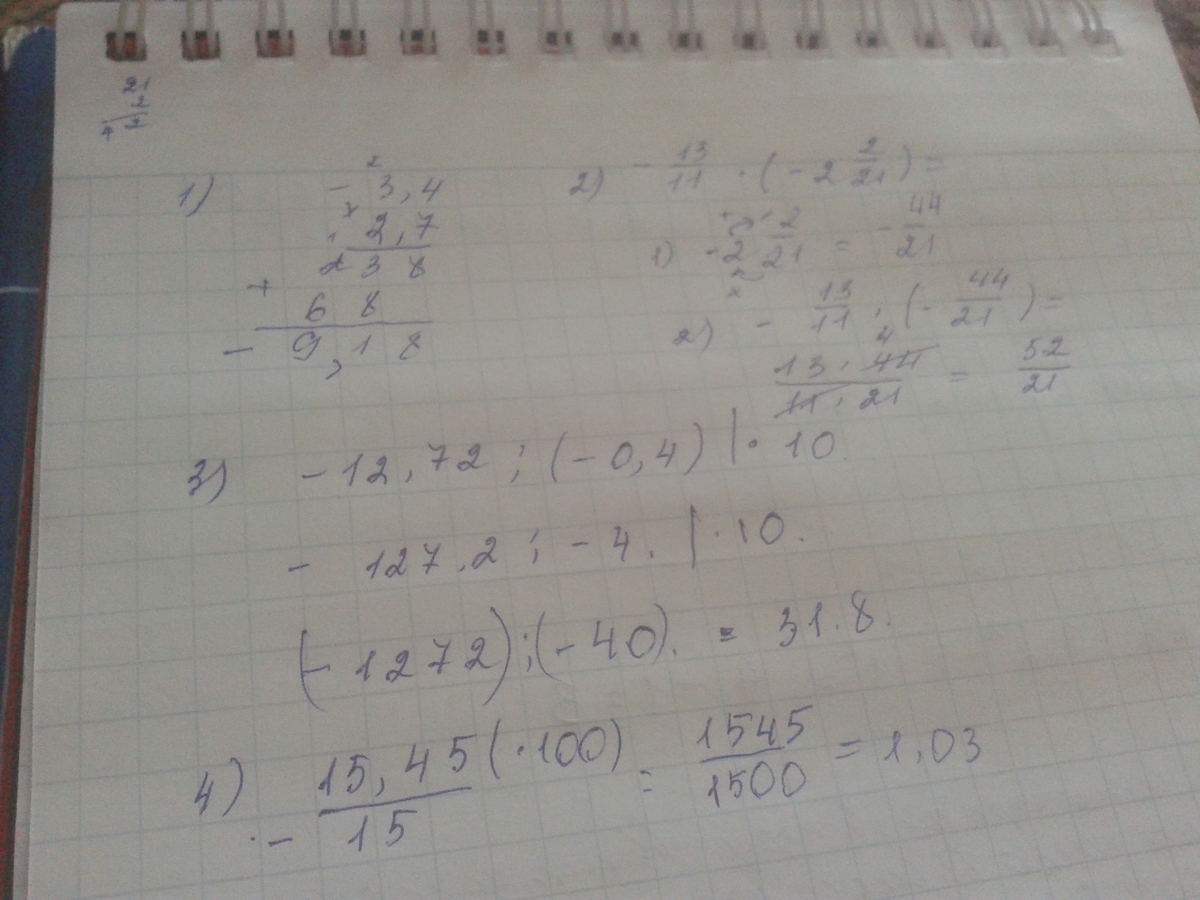 21
2
42
1) - 3,4
x 2,7
2 3 8
+ 6 8
- 9,18
2) - 13/11 · (- 2 2/21) =
1) - 2 2/21 = - 44/21
2) - 13/11 · (- 44/21) =
13 · 44 / 11 · 21 = 52/21
4
3) - 12,72 : (- 0,4) | · 10
- 127,2 : - 4. | · 10.
(- 1272) : (- 40). = 31.8.
4) - 15,45 / 15 (· 100) = 1545 / 1500 = 1,03